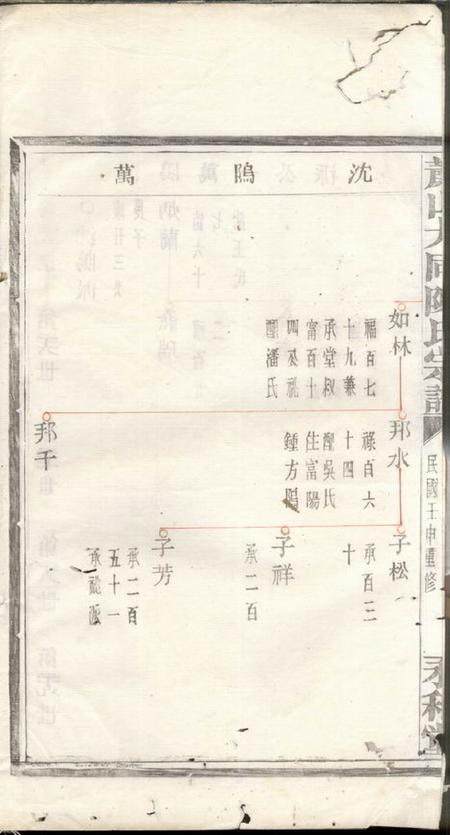 蕭山大同陳氏宗譜
民國壬申重修
永和堂
沈隖萬
如林
福百七
十九兼
承堂叔
富百十
四公祧
配潘氏
邦水
祿百六
十四
配吳氏
住富陽
鍾方隖
邦千
子松
承百三
十
子祥
承二百
子芳
承二百
五十一
承認派